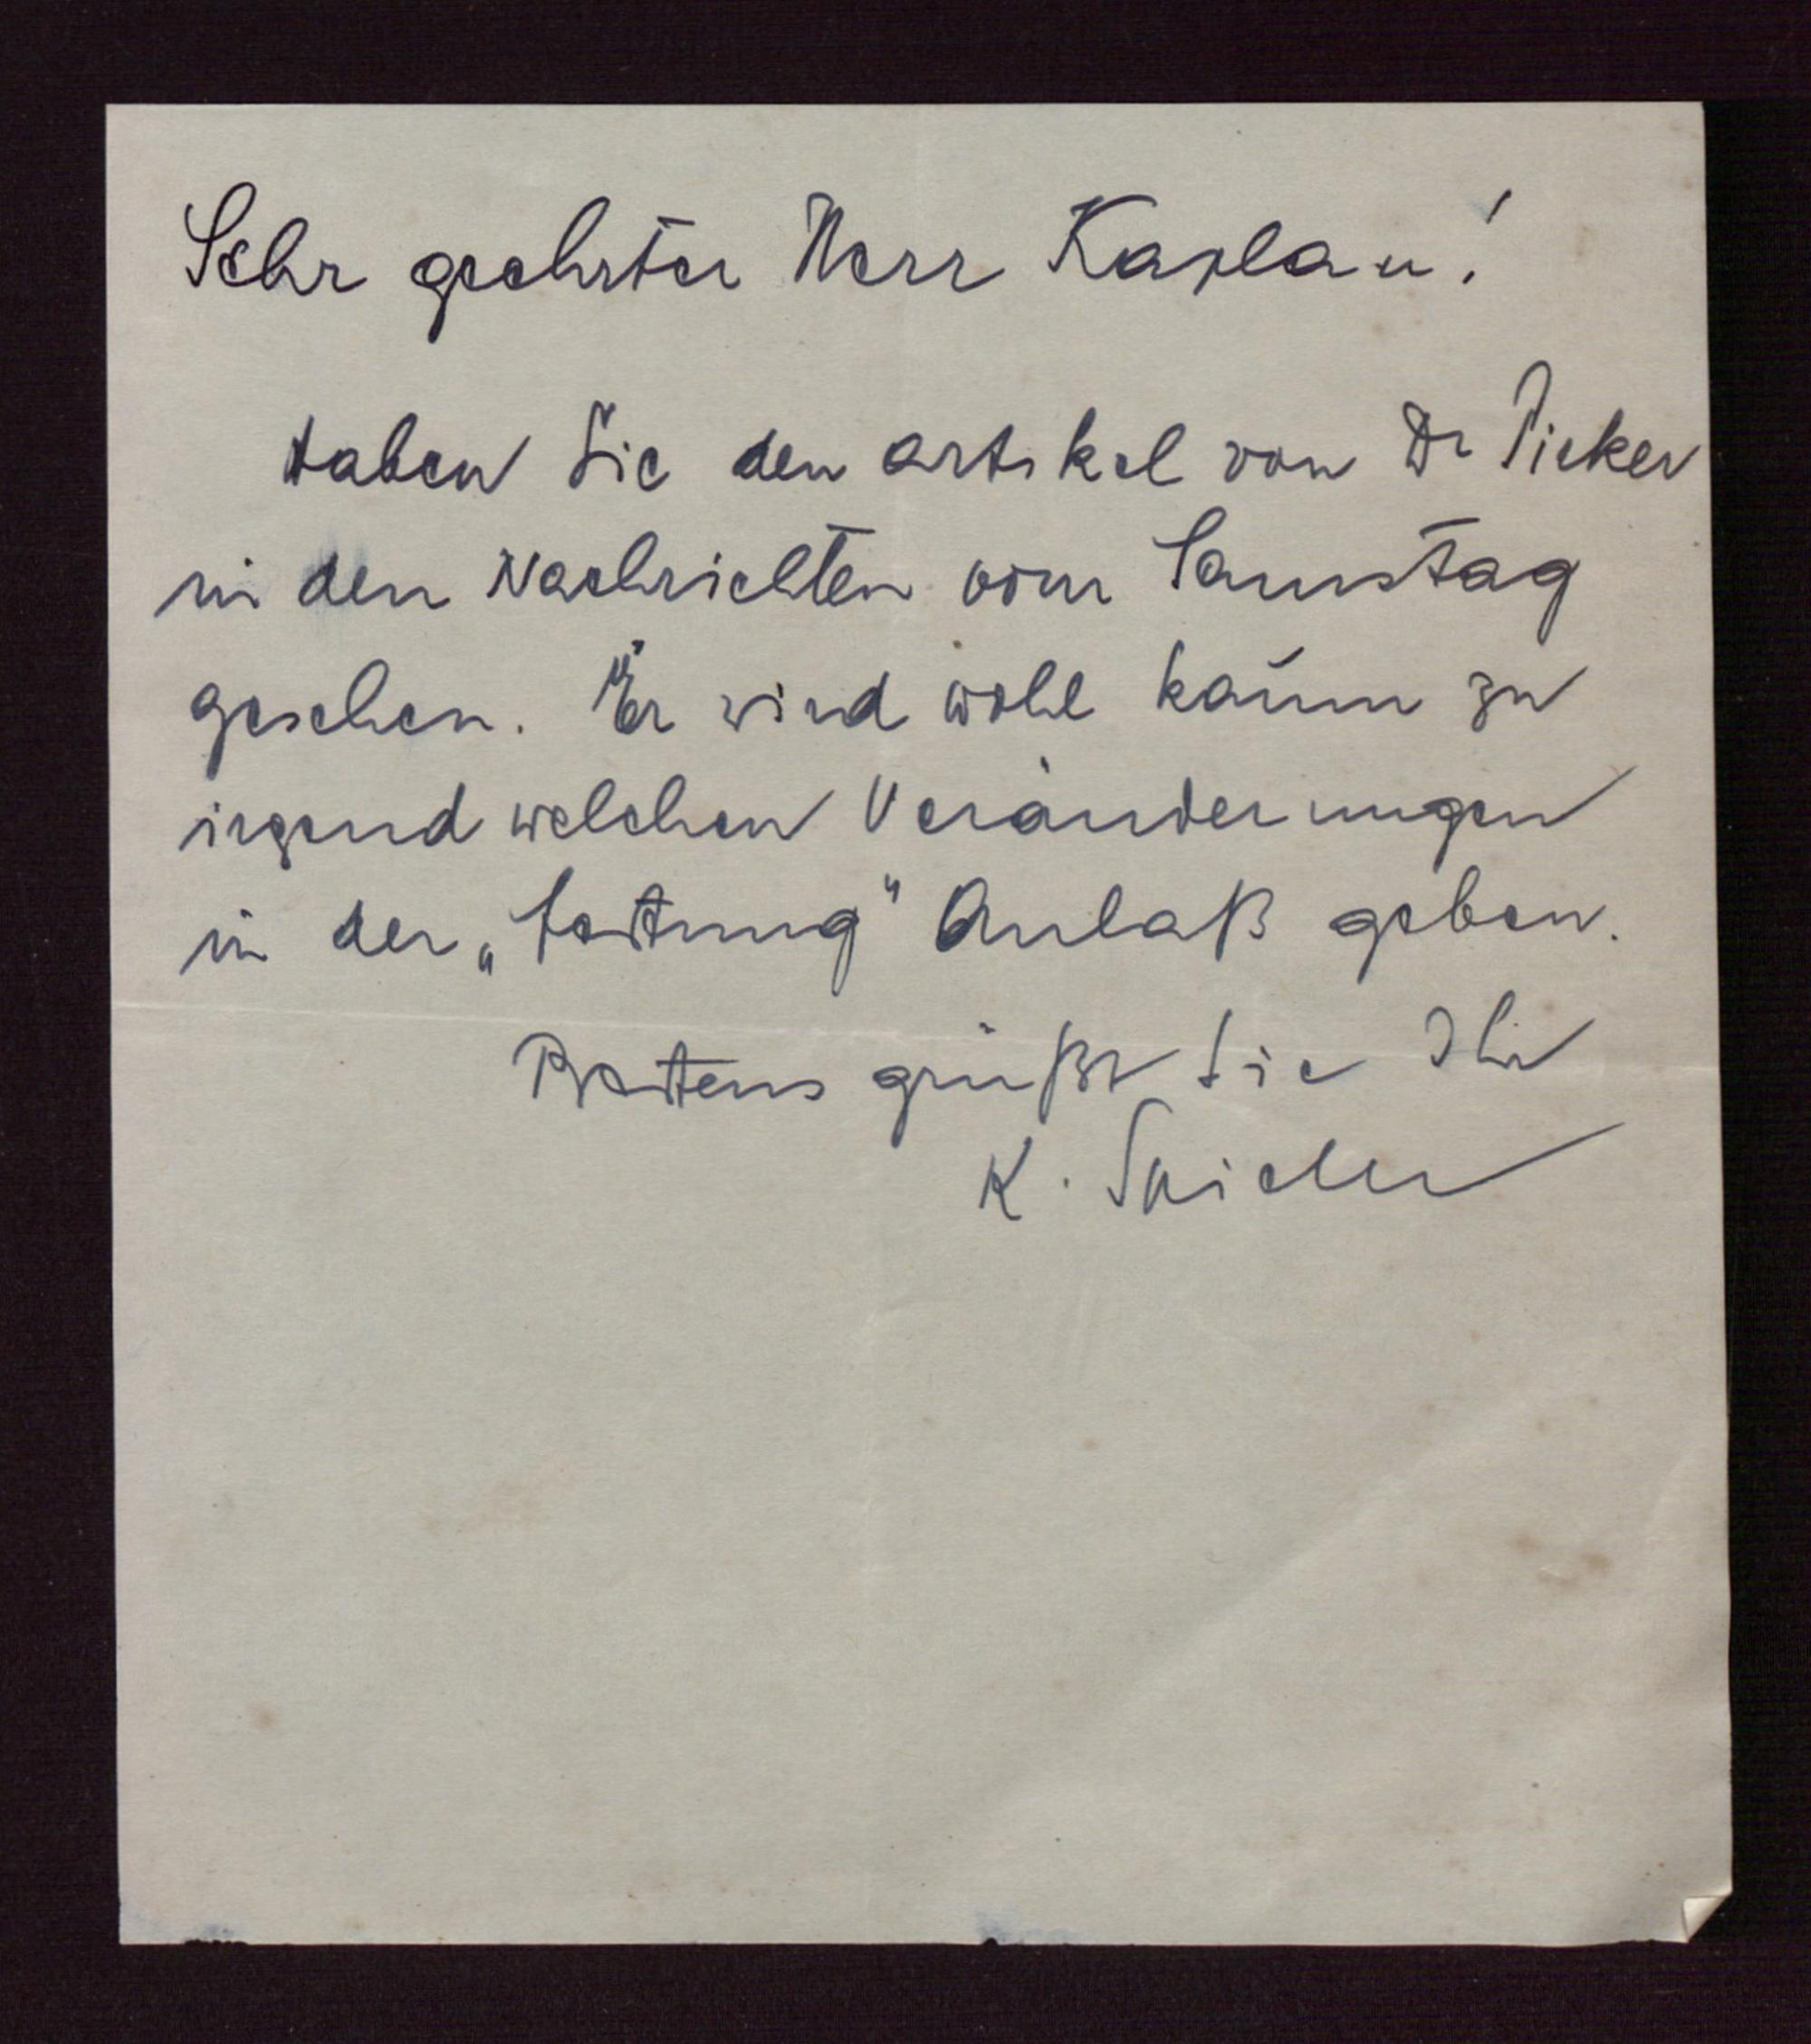 Sehr geehrter Herr Kaplan!
Haben Sie den Artikel von Dr Picker
in den Nachrichten vom Samstag
gesehen. Er wird wohl kaum zu
irgend welchen Veränderungen
in der „Festung" Anlaß geben.
Bestens grüßt Sie Ihr
K.